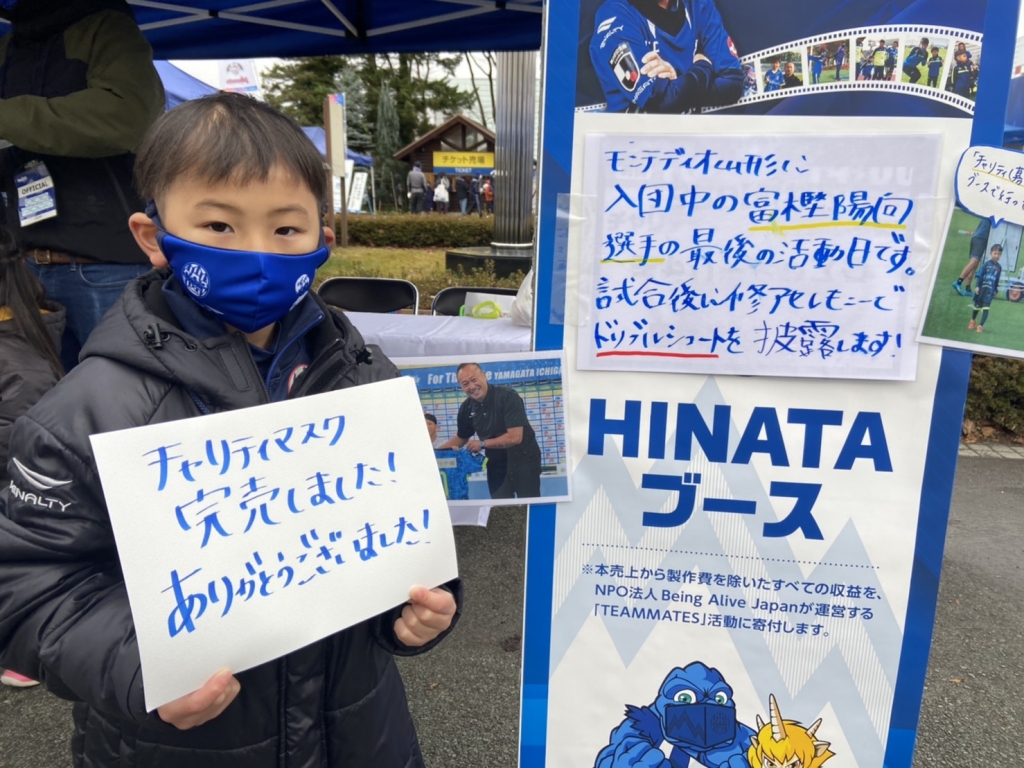 チケット売場
TICKET
OFFICIAL
PENALTY
チャリティマスク
完売しました!
ありがとうございました!
For The
YAMAGATA ICHIGA
モンテディオ山形に
入団中の富樫陽向
選手の最後の活動日です。
試合後に修了セレモニーで
ドリブルシュートを披露します!
「チャリティし募
ブースで行っ
HINATA
ブース
※本売上から製作費を除いたすべての収益を、
NPO法人Being Alive Japanが運営する
「TEAMMATES」活動に寄付します。